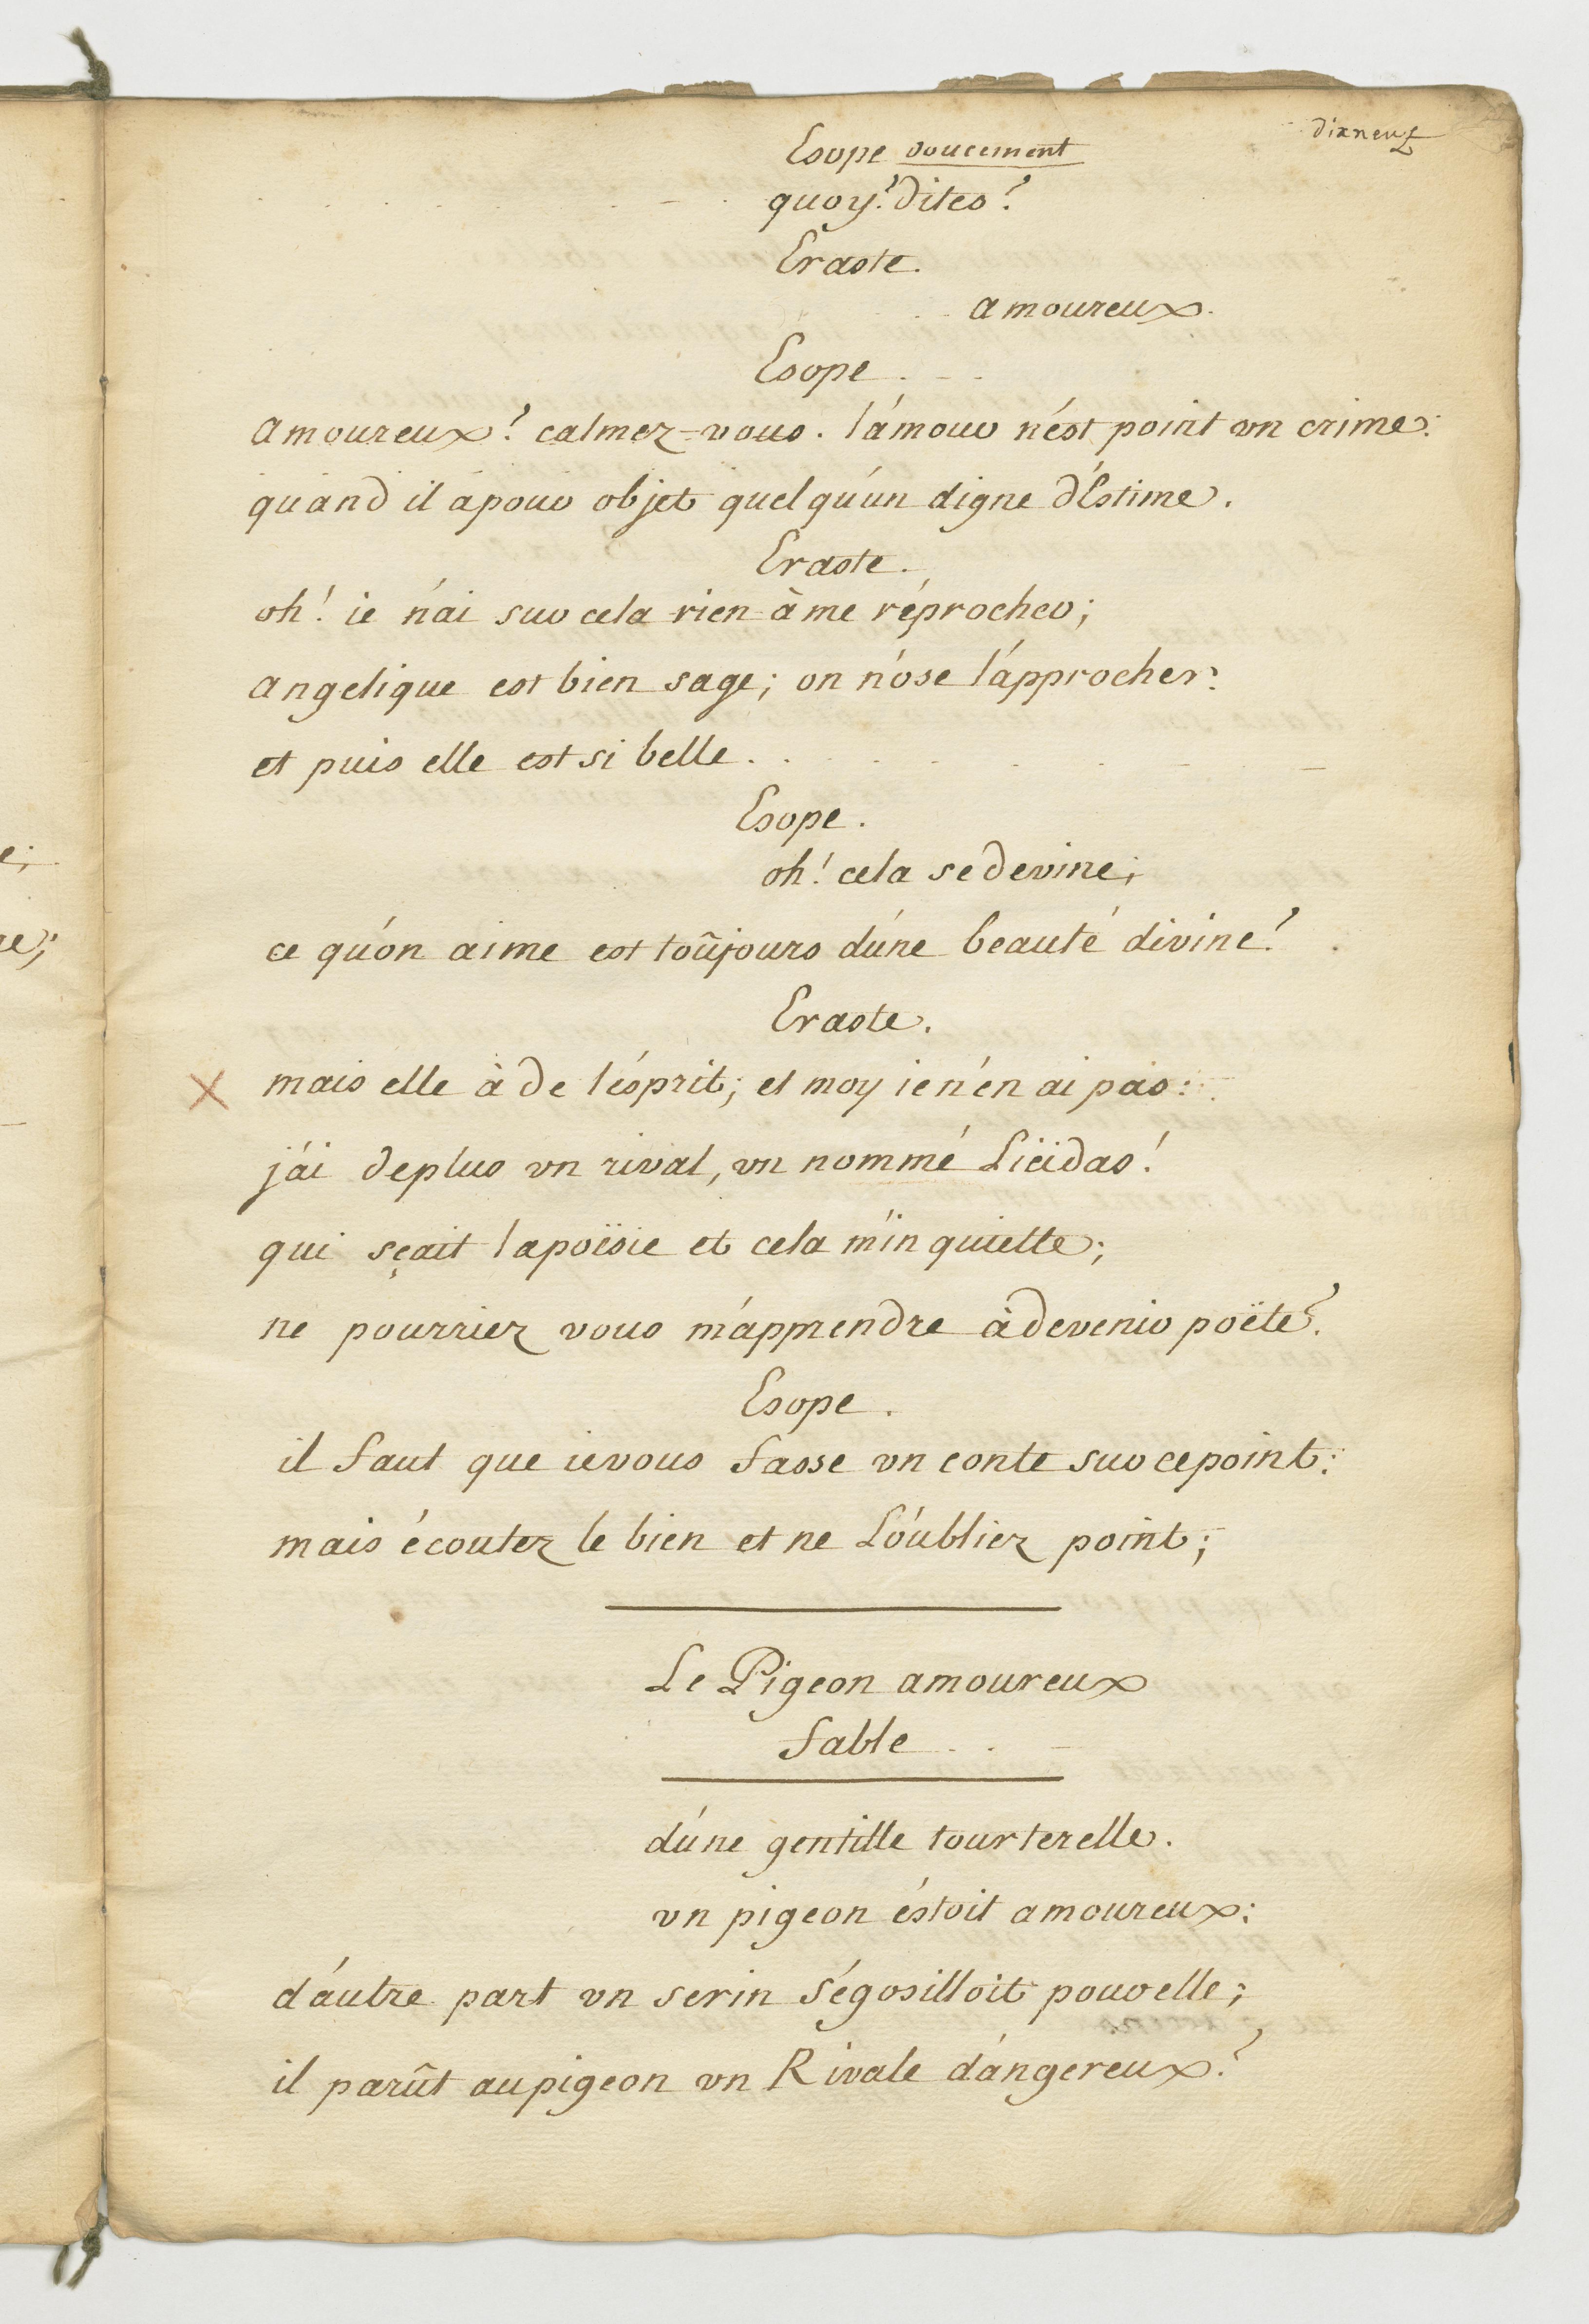 dixneuf
Esope doucement
quoy? dites?
Eraste.
amoureux.
Esope.
amoureux? calmez-vous. l'ámour n'ést point vn crime:
quánd il ápour objet quelqu'un digne d'Éstime.
Eraste.
oh! ie n'ai sur cela rien à me réprocher;
angelique est bien sage; on n'óse l'ápprocher:
et puis elle est si belle.
Esope.
oh! cela se devine;
ce qu'ón aime est toûjours d'úne beauté divine!
Eraste.
X mais elle à de l'ésprit; et moy ie n'én ai pas:
j'ái deplus vn rival, vn nommé Licidas!
qui sçait lapoësie et cela m'ín quiette;
ne pourriez vous m'ápprendre àdevenir poëte?
Esope.
il faut que ievous fasse vn conte sur cepoint:
mais écoutez le bien et ne L'óubliez point;
Le Pigeon amoureux
fable
d'úne gentille tourterelle.
vn pigeon éstoit amoureux:
d'áutre part vn serin s'égosilloit pour elle;
il parût aupigeon vn Rivale dángereux?
e;
re;